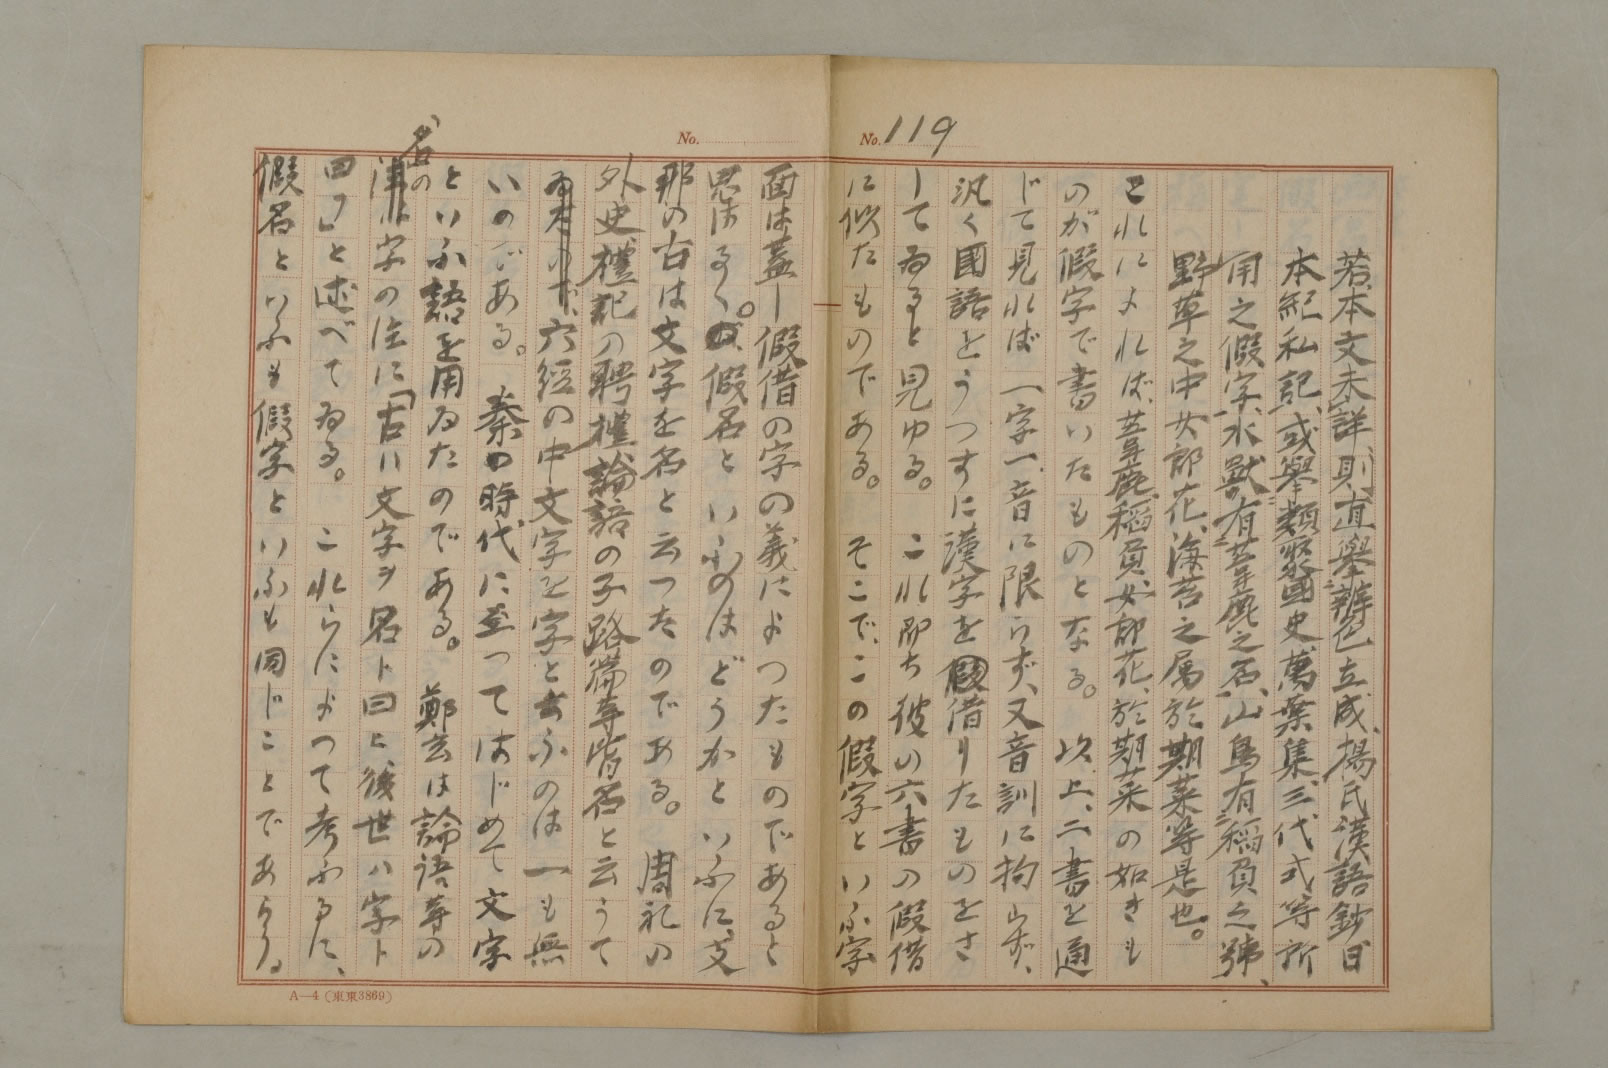 No. 119
若本文未詳則直擧辨色立成、楊氏漢語鈔、日
本紀私記、或擧類聚國史、萬葉集、三代式等所
用之假字、水獸有葦鹿之名、山鳥有稲負之號、
野草之中女郎花、海苔之属於期菜等是也。
これによれば、葦鹿、稲負、女郎花、於期菜の如きも
のが假字で書いたものとなる。以上、二書を通
じて見れば一字一音に限らず、又音訓に拘らず、
汎く國語をうつすに漢字を假借りたものをさ
してゐると見ゆる。これ即ち彼の六書の假借
に似たものである。そこで、この假字といふ字
No.
面は蓋し假借の字の義によつたものであると
思はるゝが、假名といふのはどうかといふに、支
那の古は文字を名と云つたのである。周礼の
外史、禮記の聘禮、論語の子路篇等皆名と云うて
六經の中文字を字と云ふのは一も無
いのである。秦の時代に至つてはじめて文字
といふ語を用ゐたのである。鄭玄は論語等の
名の字の注に「古ハ文字ヲ名ト曰ヒ後世ハ字ト
曰フ」と述べてゐる。これらによつて考ふるに、
假名といふも假字といふも同じことであらう。
A—4 (東東3869)